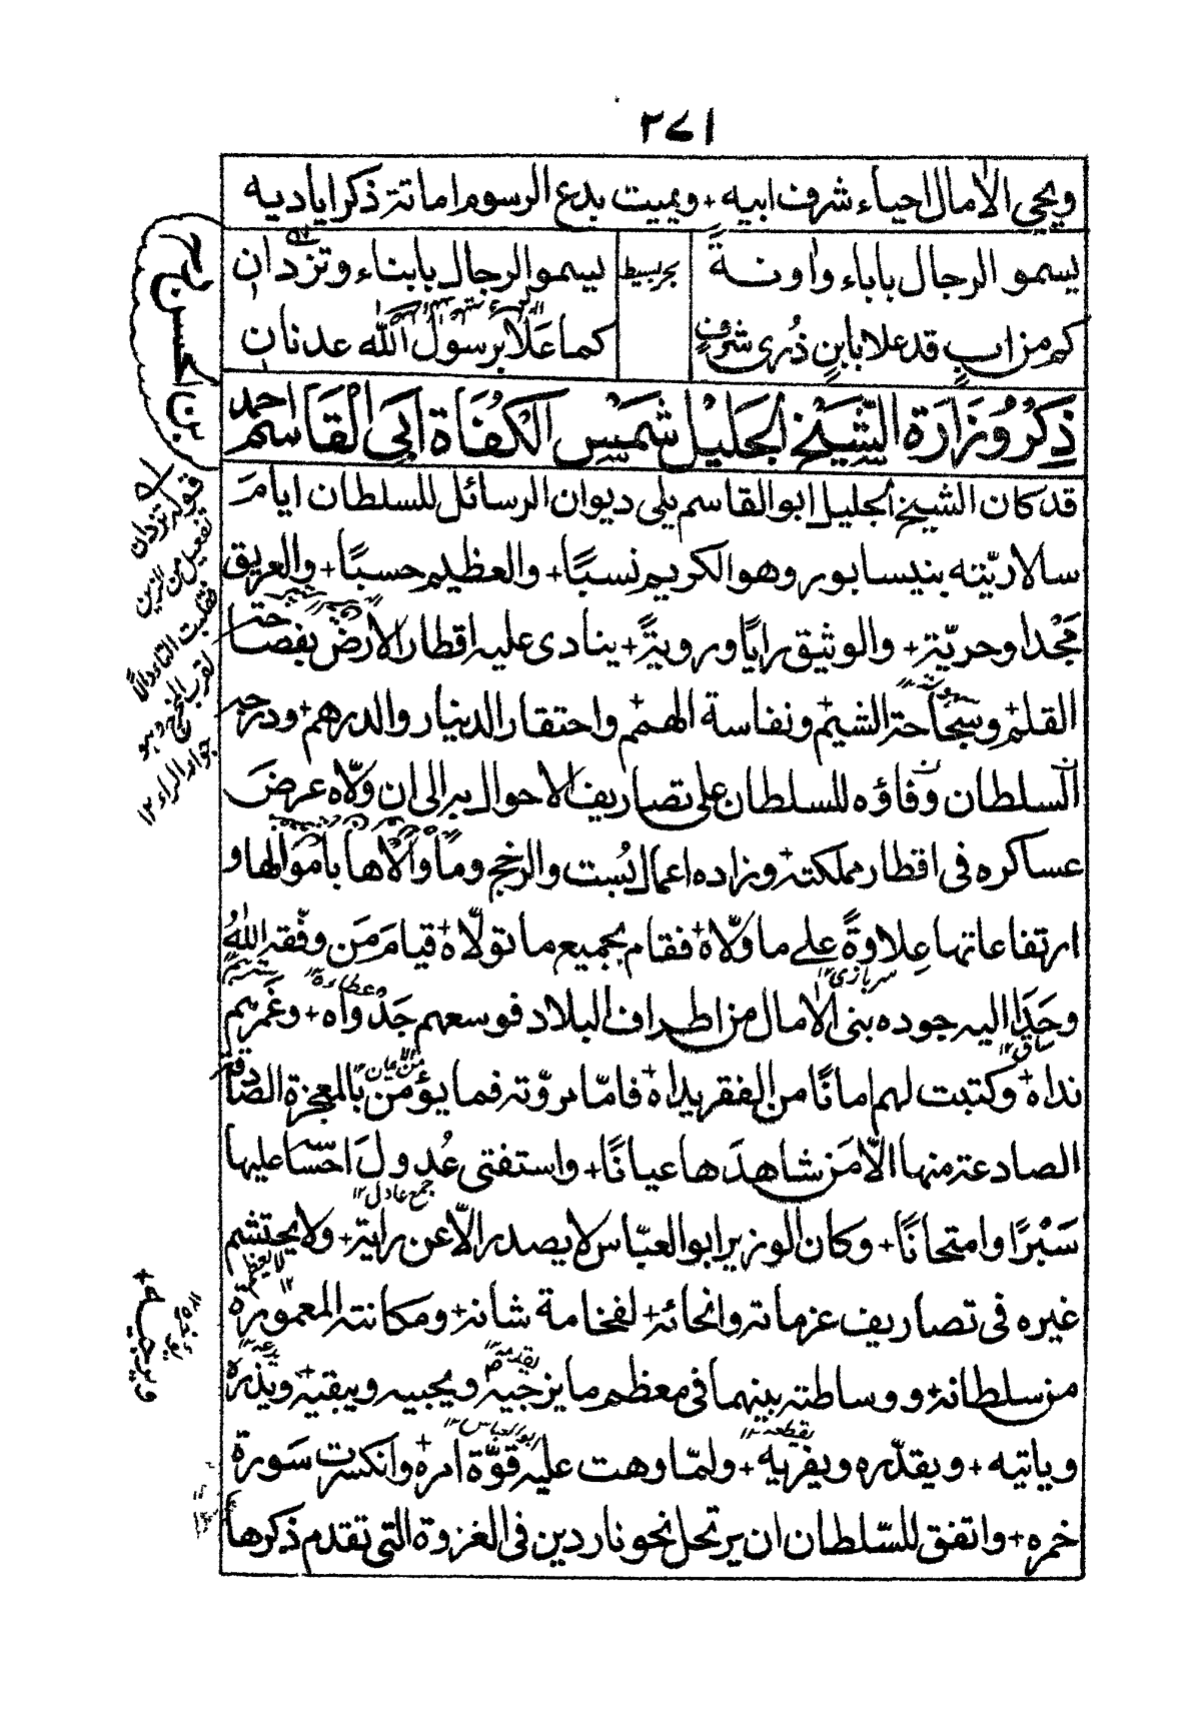 ٢٧١
ويحيي الآمال احياء شرف ابيه + ويميت بدع الرسوم اماتة ذكر اياديه
يسمو الرجال باٰباء واٰونةً بحر بسيط يسمو الرجال بابناء وتزدان
كم من ابٍ قد علا بابنٍ ذُرى شرفٍ كما عَلا برسول الله عدنان
ذِكْرُ وِزَارَةِ الشَّيْخِ الجَلِيْلِ شَمْسِ الكُفَاةِ اَبِي القَاسِمِ احمد
بن الحسن
قد كان الشيخ الجليل ابو القاسم يلي ديوان الرسائل للسلطان ايامَ
سالاريّته بنيسابور وهو الكريم نسبًا + والعظيم حسبًا + والعريق
مَجْدا وحريّة + والوثيق رايًا ورويةً + ينادى عليه اقطار الارض بفصاحة
القلم + وسَجَاحة الشيم + ونفاسة الهمم + واحتقار الدينار والدرهم + ودرجه
السلطان وفاؤه للسلطان على تصاريف الاحوال به الى ان ولّاه عرضَ
عساكره فى اقطار مملكته + وزاده اعمال بُست والرخج وما والاها باموالها و
ارتفاعاتها عِلاوةً على ما ولّاه + فقام بجميع ما تولّاه + قيامَ مَن وفّقه اللهُ
وحَدَا اليه جوده بنى الآمال من اطراف البلاد فوسعهم جَدْواه + وغمرهم
نداه + وكتبت لهم امانًا من الفقر يداه + فامّا مروّته فما يؤمن بالمعجزة الصادقة
الصادعة منها الّا مَن شاهدَها عيانًا + واستفتى عُدولَ احسّا عليها
سَبْرًا وامتحانًا + وكان الوزير ابو العبّاس لا يصدر الّا عن رايه + ولا يحتشم
غيره فى تصاريف عزماته وانحائه + لفخامة شانه + ومكانته المعمورة
من سلطانه + ووساطته بينهما فى معظم ما يزجيه ويجبيه ويبقيه + ويذره
وياتيه + ويقدّره ويفريه + ولمّا وهت عليه قوّة امره + وانكسرت سَورة
خمره + واتفق للسّلطان ان يرتحل نحو ناردين فى الغزوة التى تقدم ذكرها
قوله تزدان
تفعيل من الزين
فقلبت التاء دالًا
لقرب المخرج وهو
جوار الراء ١٢